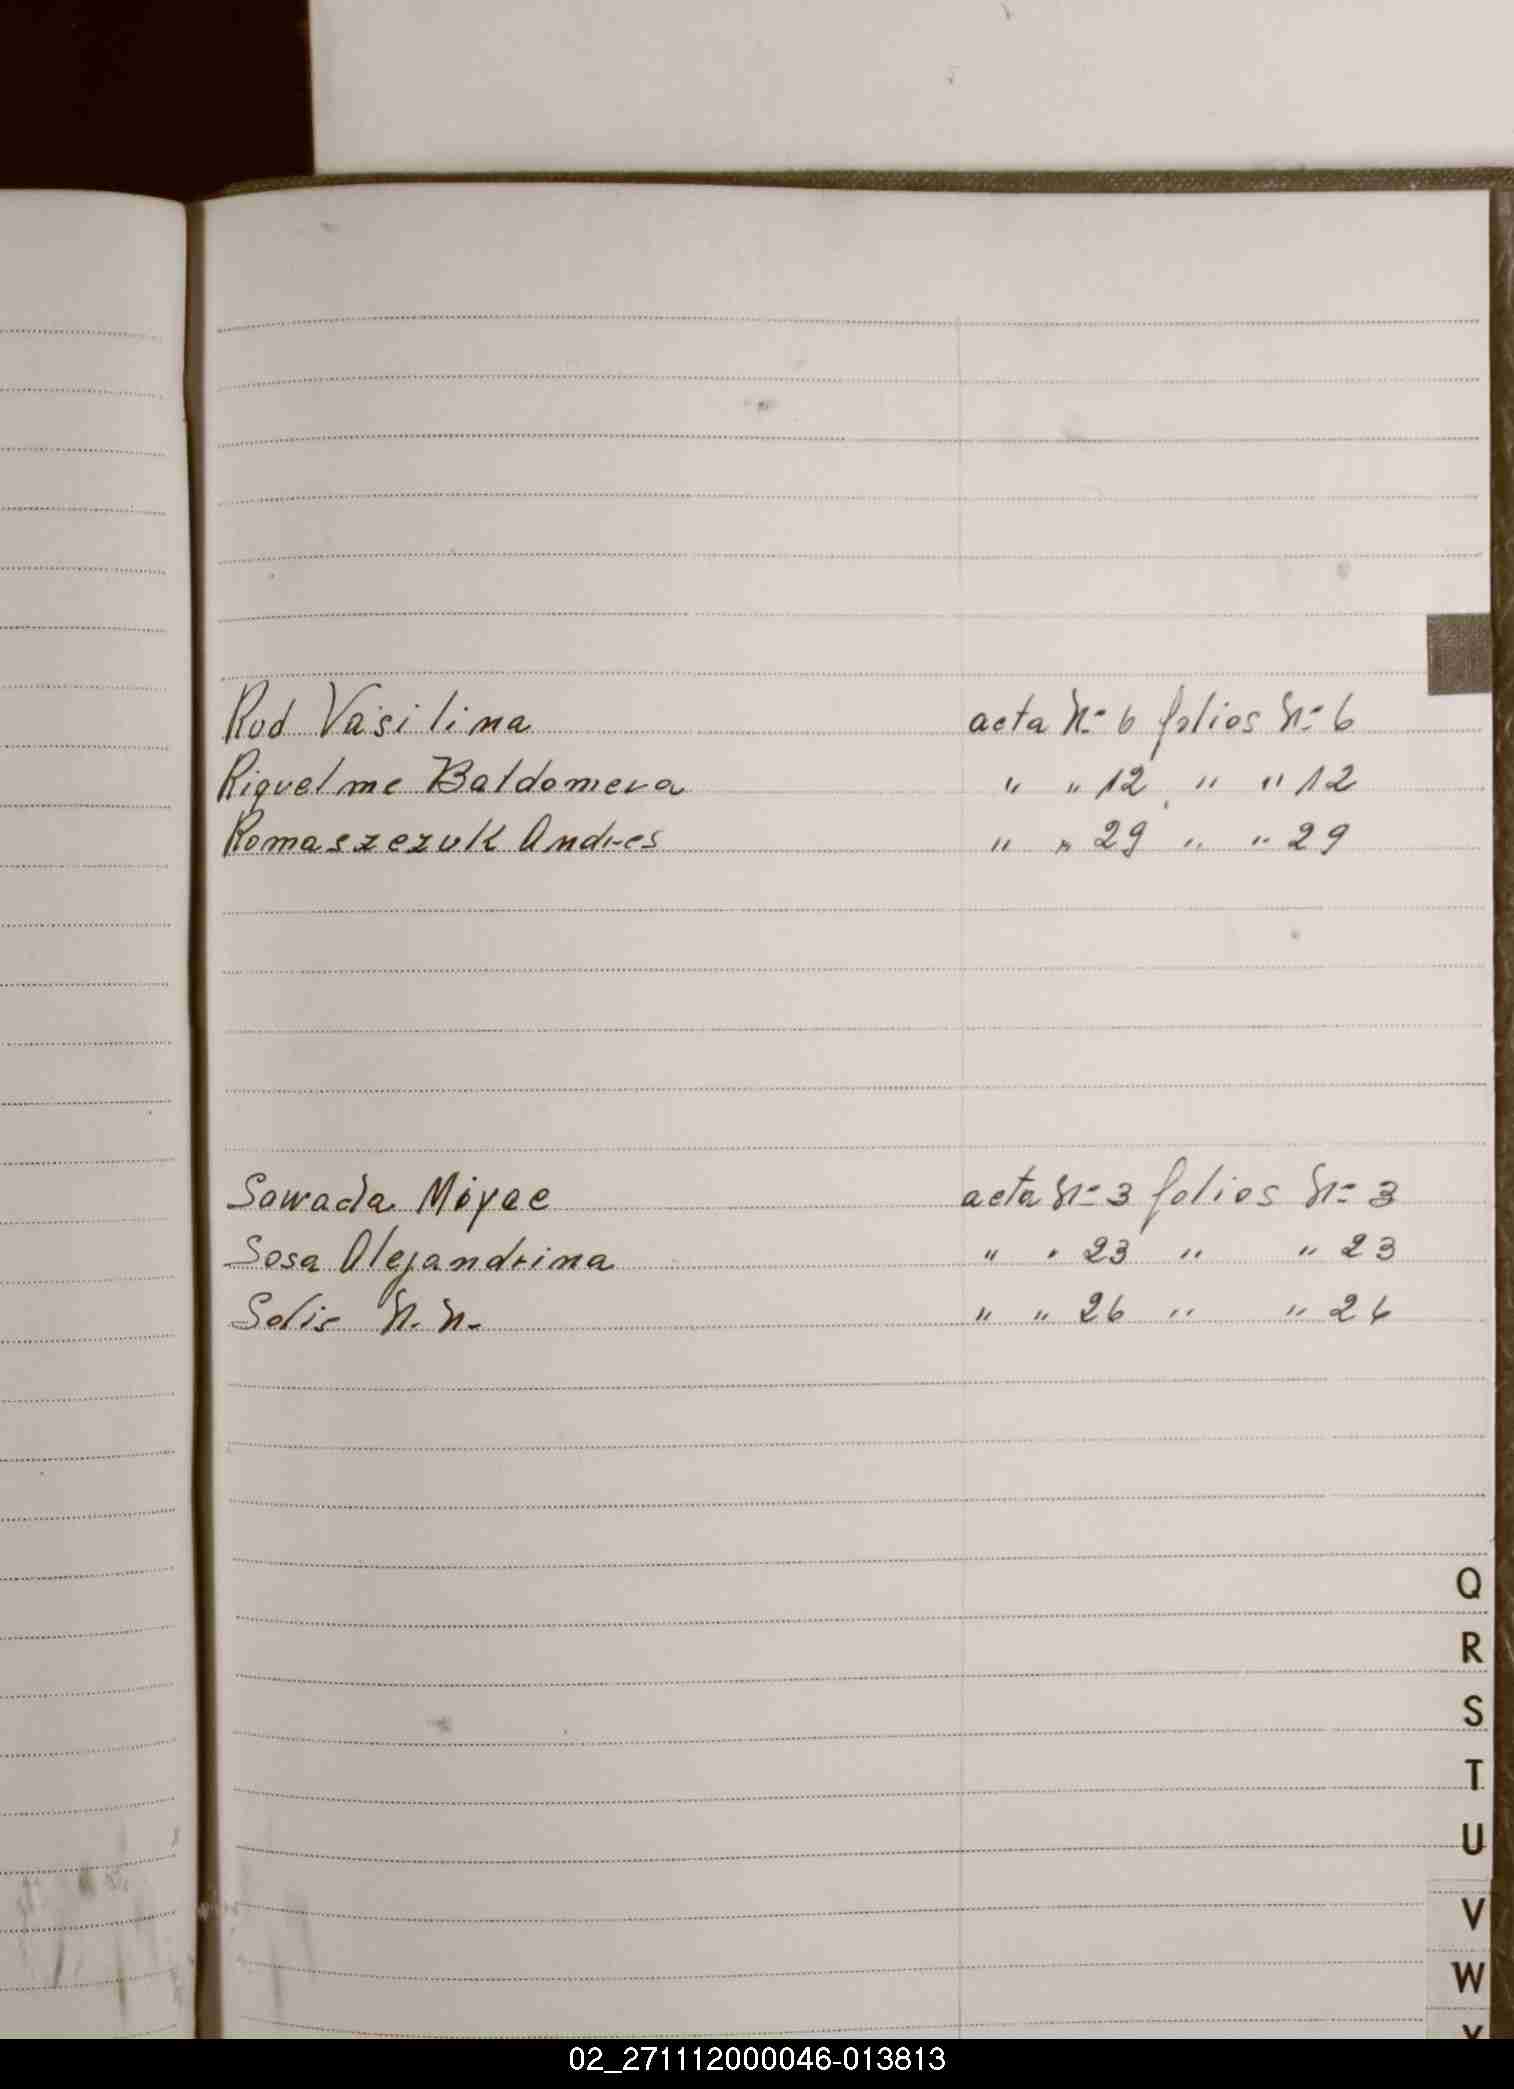 Rud Vasilina acta Nº 6 folios Nº 6
Riquelme Baldomera " " 12 " " 12
Romaszezuk Andres " " 29 " " 29
Sawada Miyae acta Nº 3 folios Nº 3
Sosa Alejandrina " " 23 " " 23
Solis N. N. " " 26 " " 26
Q
R
S
T
U
V
W
02_271112000046-013813